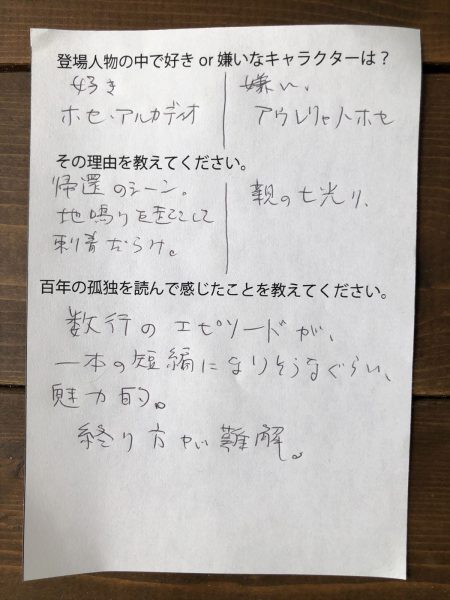 登場人物の中で好き or 嫌いなキャラクターは？
好き
ホセ・アルカディオ
嫌い
アウレリャノホセ
その理由を教えてください。
帰還のシーン。
地鳴りを起こして
刺青だらけ。
親の七光り、
百年の孤独を読んで感じたことを教えてください。
数行のエピソードが、
一本の短編になりそうなぐらい、
魅力的。
終り方が難解。